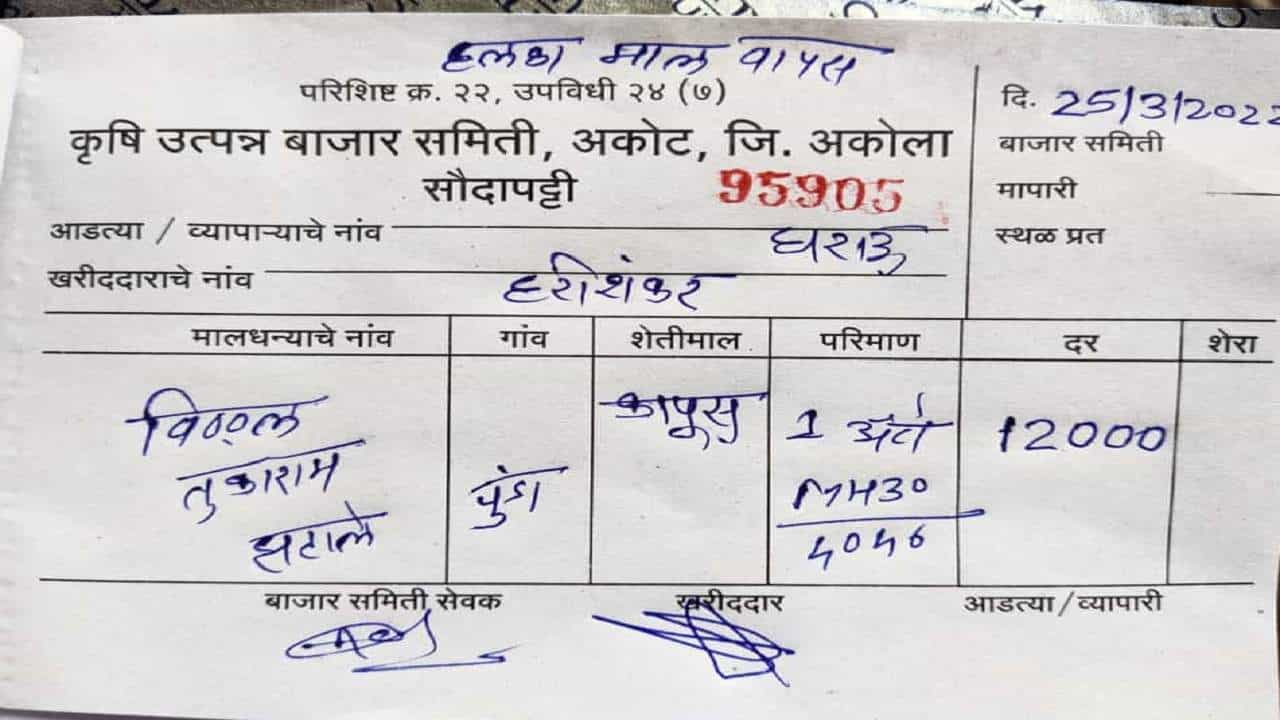 हलका माल वापस
परिशिष्ट क्र. २२, उपविधी २४ (७)
कृषि उत्पन्न बाजार समिती, अकोट, जि. अकोला
सौदापट्टी 95905
दि. 25/3/2022
बाजार समिती
मापारी
स्थळ प्रत
आडत्या / व्यापाऱ्याचे नांव
खरीददाराचे नांव हरीशंकर
मालधन्याचे नांव गांव शेतीमाल परिमाण दर शेरा
विठ्ठल तुकाराम झटाले पुंडा कापूस 1 MH30 4046 12000
बाजार समिती सेवक खरीददार आडत्या / व्यापारी